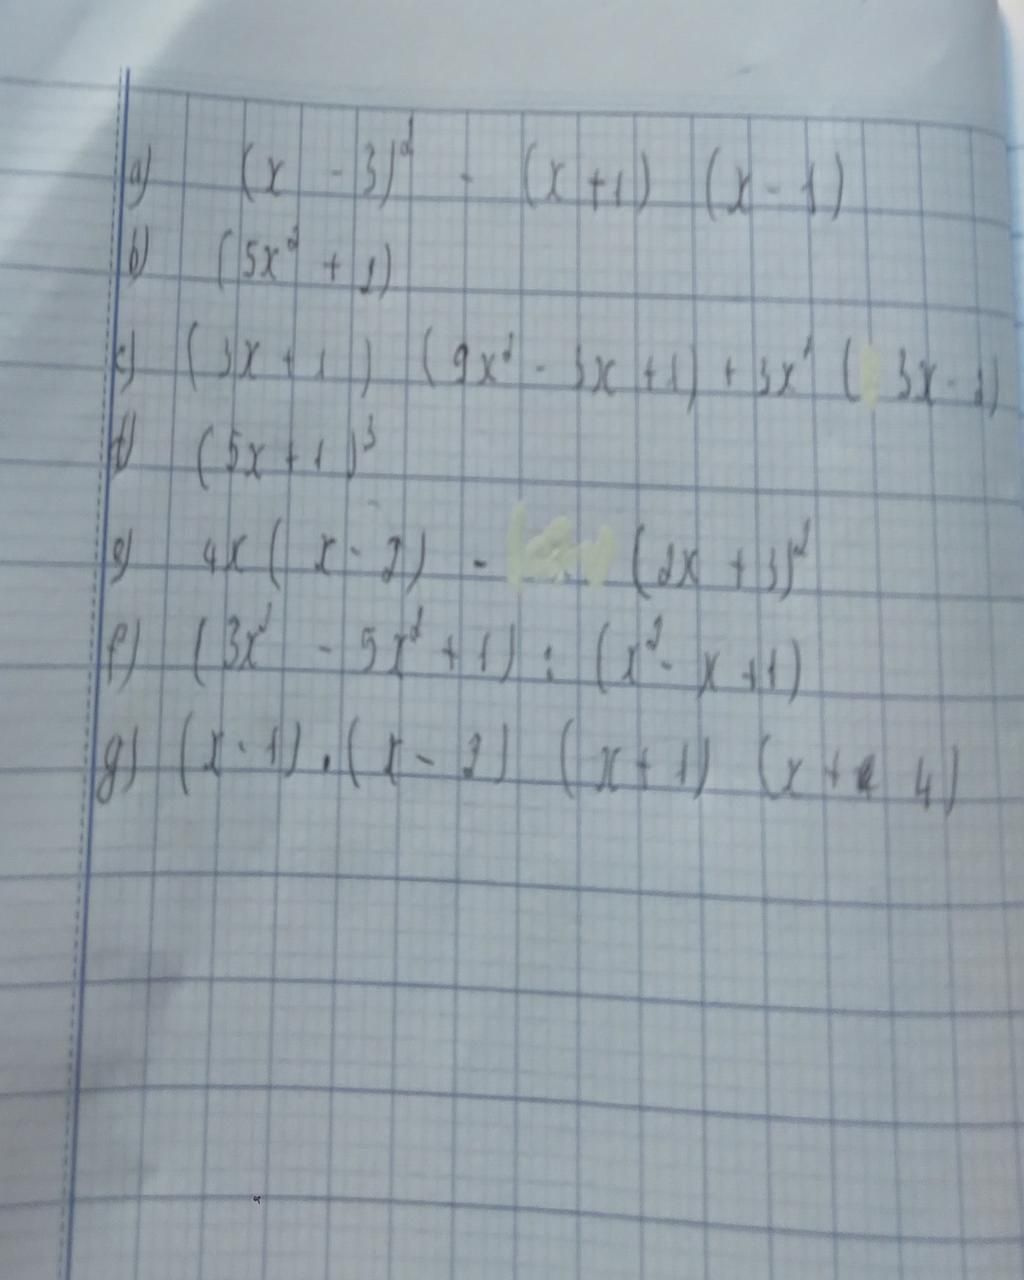 a) (x - 3)² - (x + 1) (x - 1)
b) (5x² + 1)
c) (3x + 1) (9x² - 3x + 1) + 3x² (3x - 1)
d) (5x + 1)³
e) 4x (x - 2) - (2x + 3)²
f) (3x² - 5x² + 1) : (x² - x + 1)
g) (x - 1) . (x - 2) (x + 1) (x + 4)